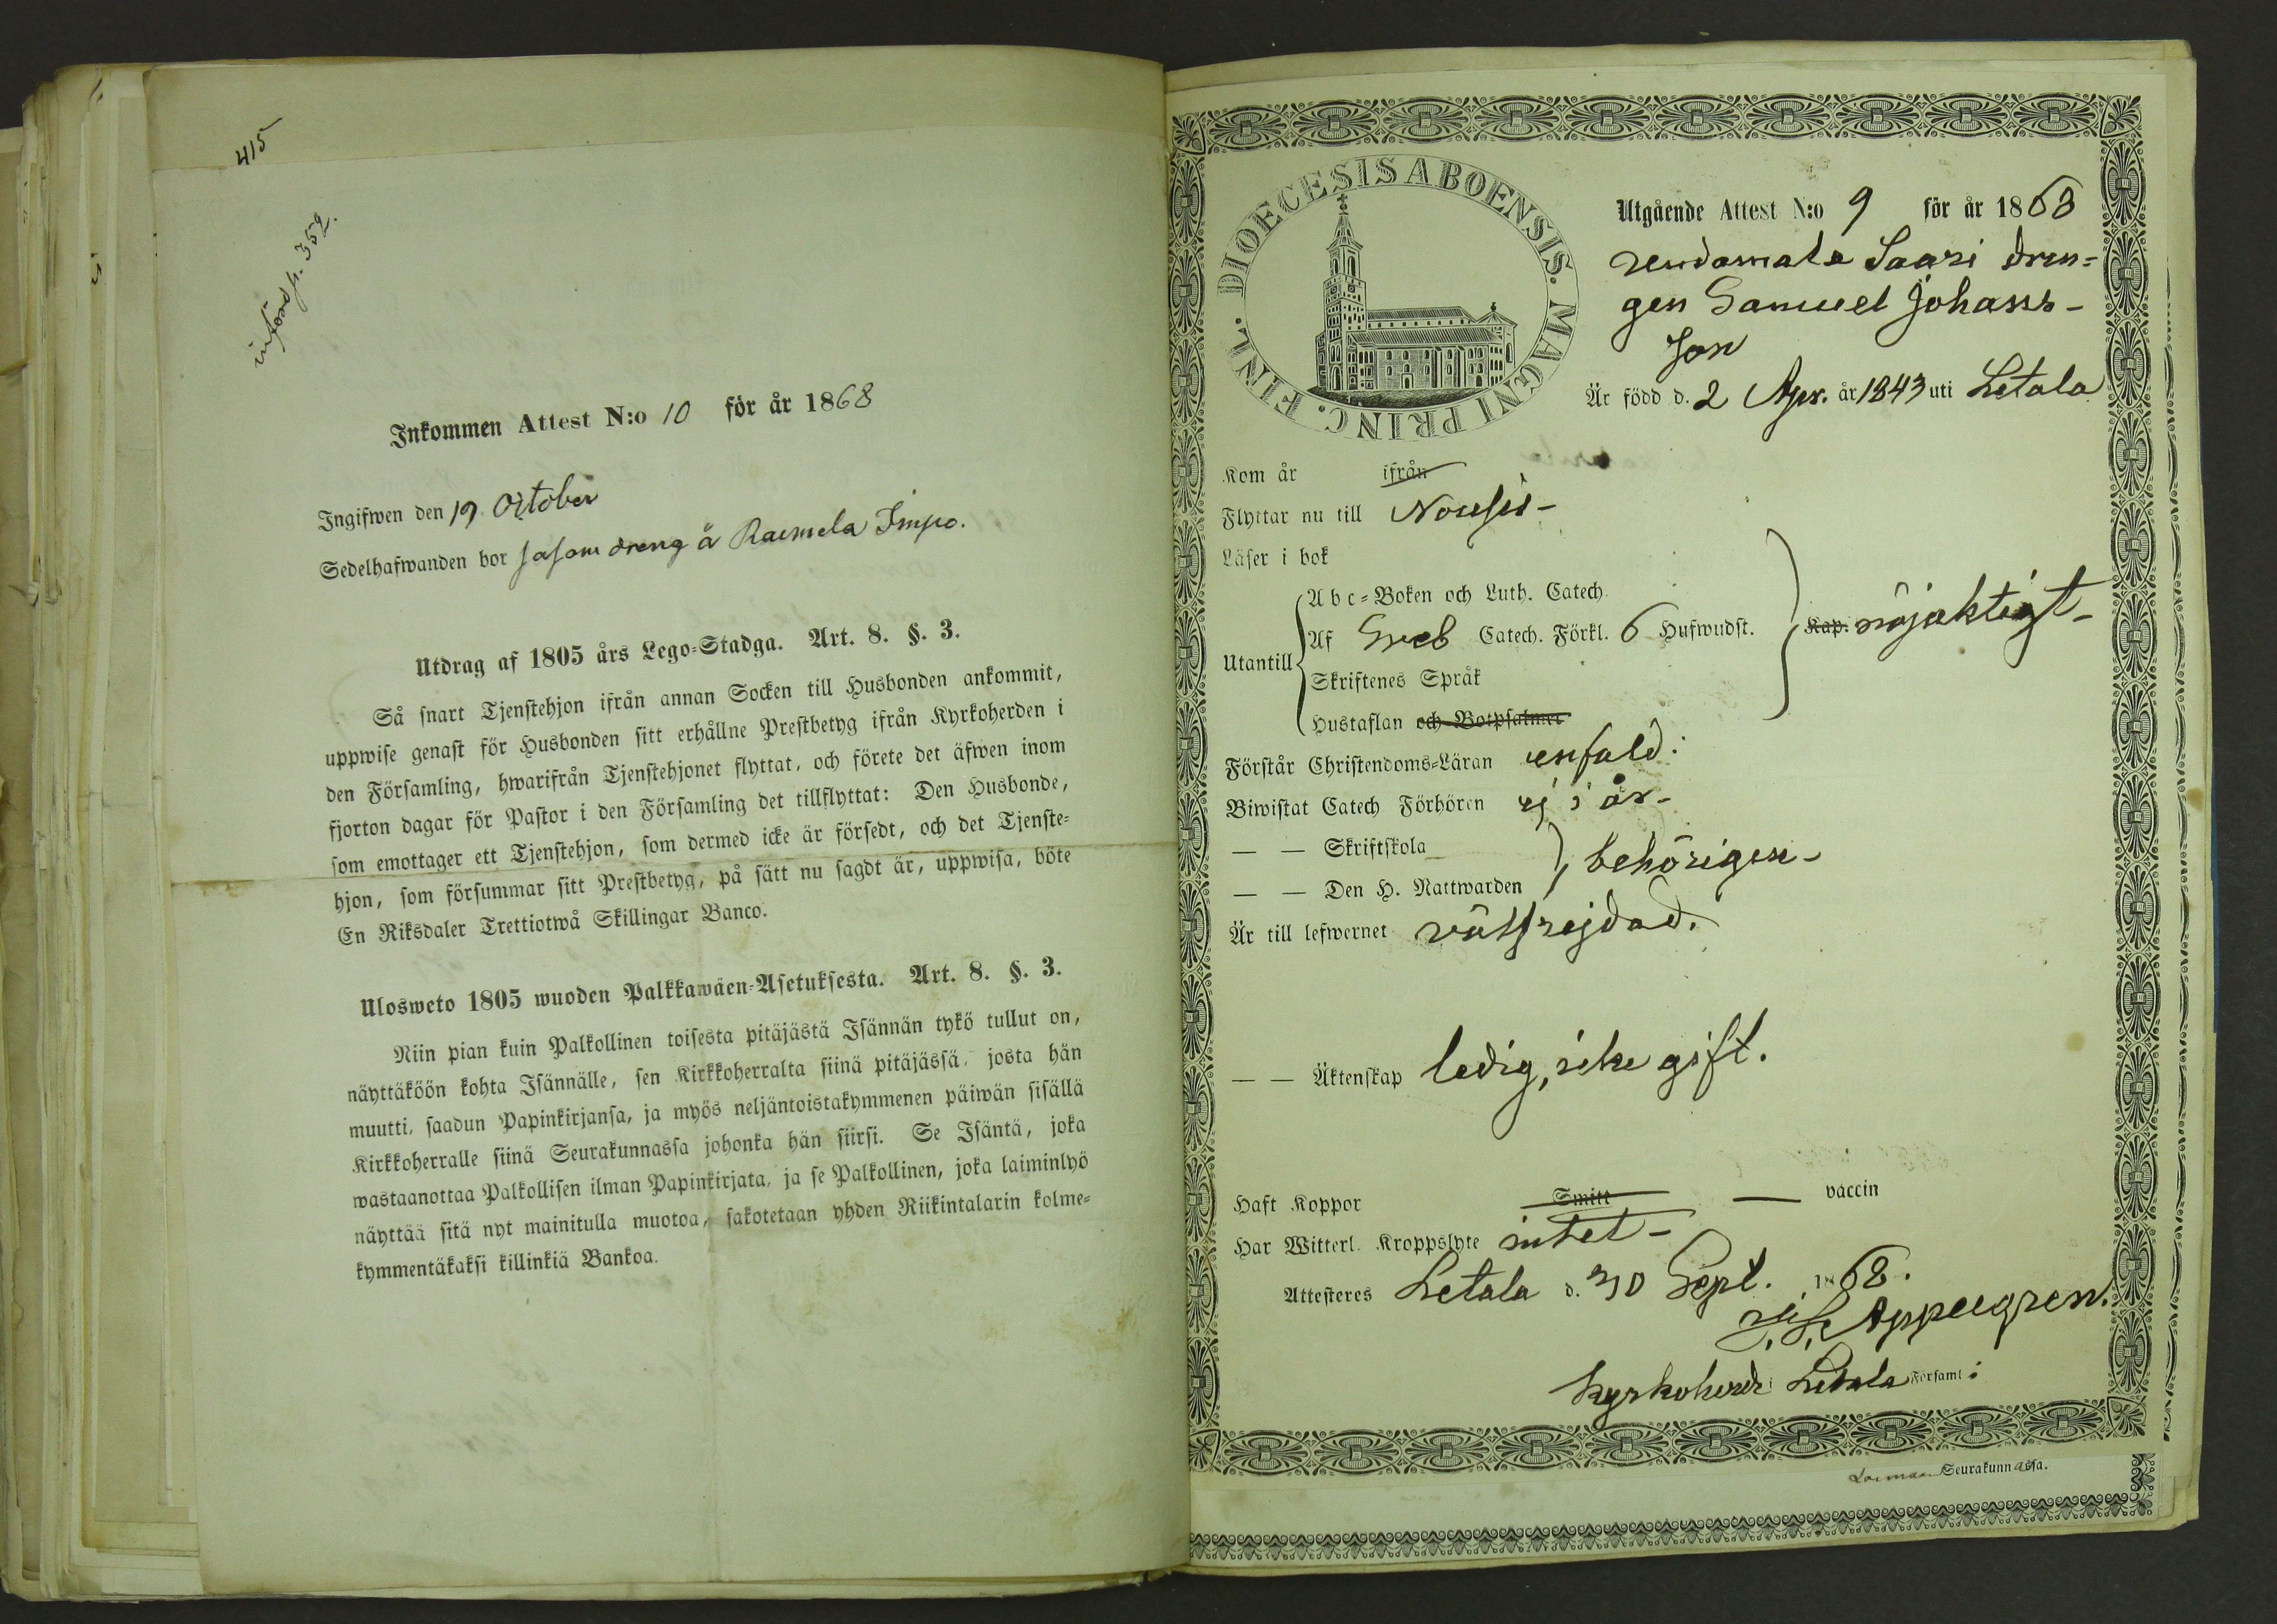 415
införd p. 352.
Inkommen Attest N:o 10 för år 1868
Ingifwen den 19 October
Sedelhafwanden bor såsom dreng å Raemela Impo.
Utdrag af 1805 års Lego-Stadga. Art. 8. §. 3.
Så snart Tjenstehjon ifrån annan Socken till Husbonden ankommit,
uppwise genast för Husbonden sitt erhållne Prestbetyg ifrån Kyrkoherden i
den Församling, hwarifrån Tjenstehjonet flyttat, och förete det äfwen inom
fjorton dagar för Pastor i den Församling det tillflyttat: Den Husbonde,
som emottager ett Tjenstehjon, som dermed icke är försedt, och det Tjenste-
hjon, som försummar sitt Prestbetyg, på sätt nu sagdt är, uppwisa, böte
En Riksdaler Trettiotwå Skillingar Banco.
Ulosweto 1805 wuoden Palkkawäen-Asetuksesta. Art. 8. §. 3.
Niin pian kuin Palkollinen toisesta pitäjästä Isännän tykö tullut on,
näyttäköön kohta Isännälle, sen Kirkkoherralta siinä pitäjässä, josta hän
muutti, saadun Papinkirjansa, ja myös neljäntoistakymmenen päiwän sisällä
Kirkkoherralle siinä Seurakunnassa johonka hän siirsi. Se Isäntä, joka
wastaanottaa Palkollisen ilman Papinkirjata, ja se Palkollinen, joka laiminlyö
näyttää sitä nyt mainitulla muotoa, sakotetaan yhden Riikintalarin kolme-
kymmentäkaksi killinkiä Bankoa.
DIOECESIS ABOENSIS. MAGNI PRINC. FINL.
Utgående Attest N:o 9 för år 1868
Saari dren-
gen Samuel Johans-
son
Är född d. 2 Apr. år 1843 uti Letala
Kom år ifrån
Flyttar nu till Nousis-
Läser i bok
Utantill
Abc-Boken och Luth. Catech.
Af Sveb Catech. Förkl. 6 Hufwudst. Kap. nöjaktigt-
Skriftenes Språk
Hustaflan och Botpsalmer
Förstår Christendoms-Läran enfald:
Biwistat Catech Förhören ej i år-
— — Skriftskola
— — Den H. Nattwarden behörigen-
Är till lefwernet välfrejdad.
— — Äktenskap ledig, icke gift.
Haft Koppor Smitt — vaccin
Har Witterl. Kroppslyte intet-
Attesteres Letala d. 30 Sept. 1868.
Appelgren.
Kyrkoherde i Letala Församl:
Seurakunnassa.